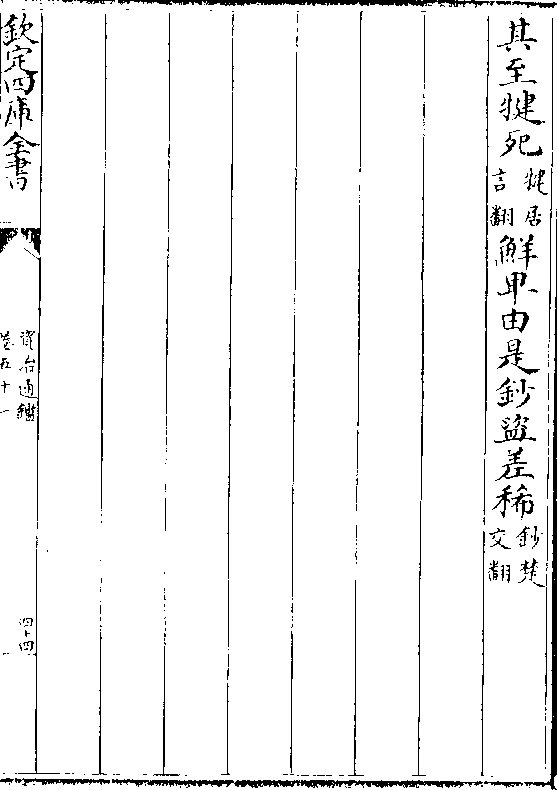 其至犍死犍居言翻鮮卑由是鈔盜差稀鈔楚交翻
欽定四庫全書
資治通鑑
卷五十一
四十四